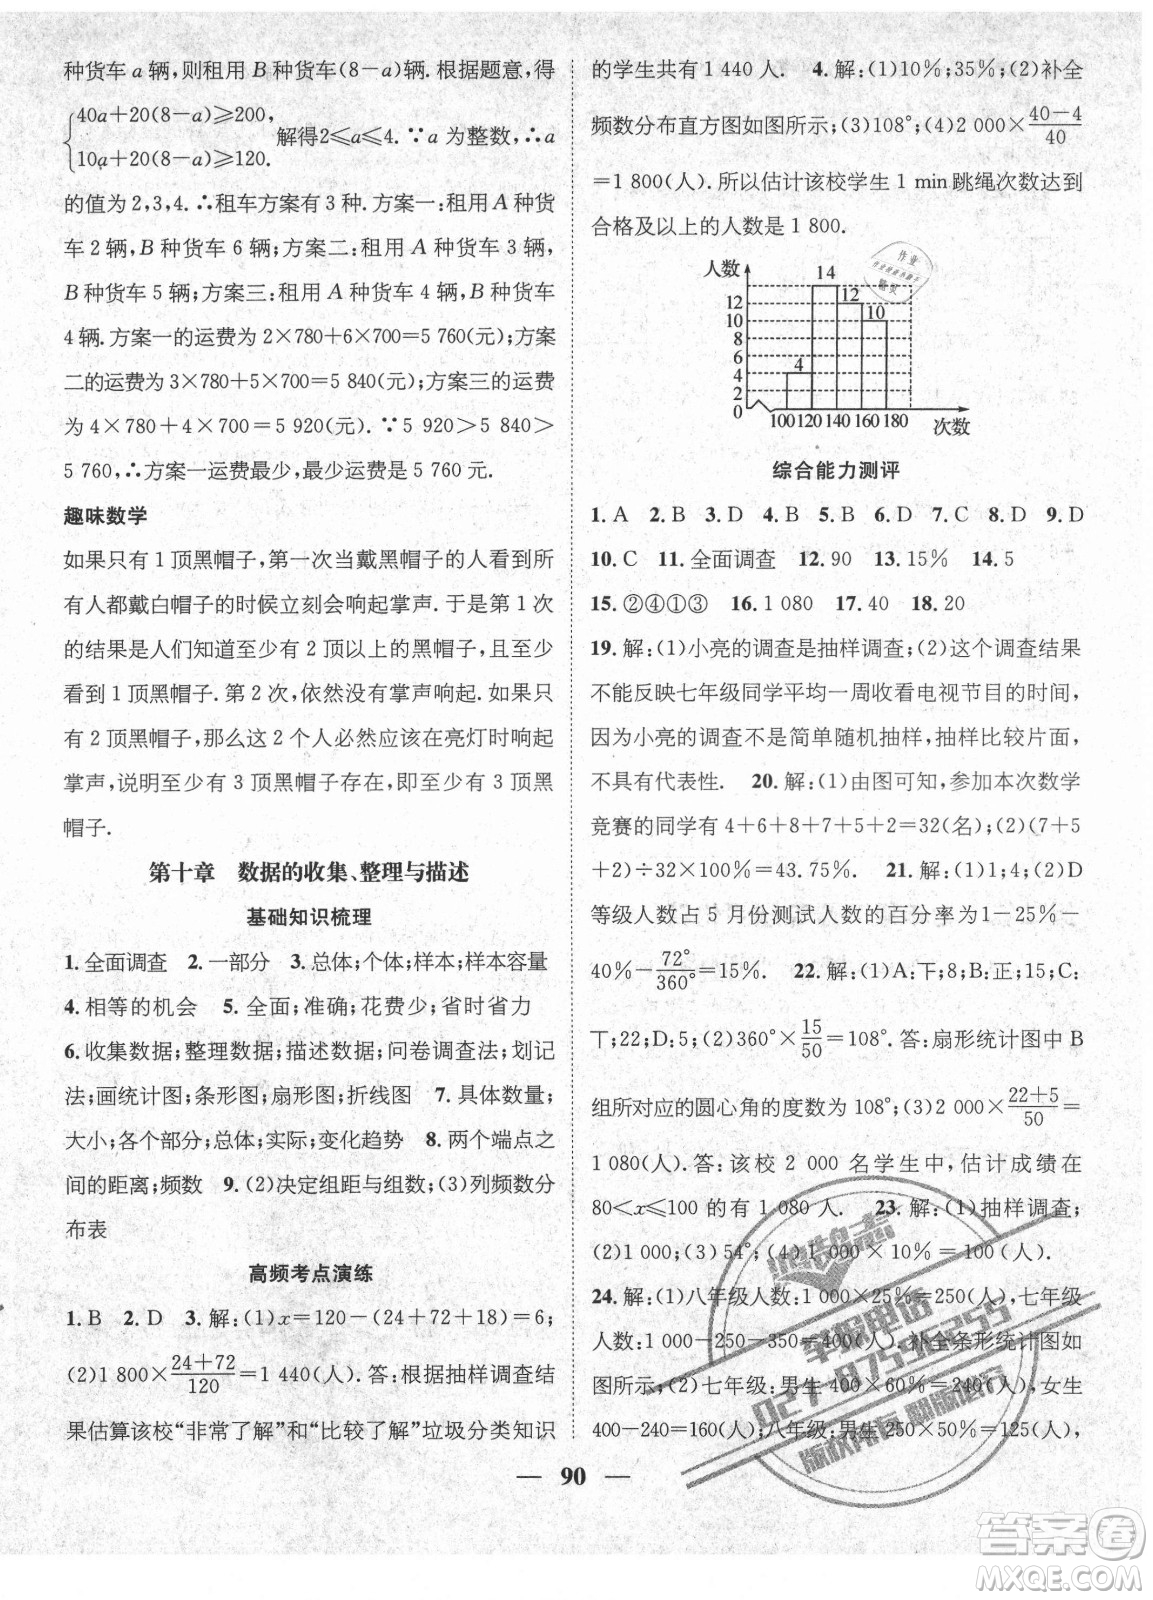 种货车a辆,则租用B种货车(8-a)辆.根据题意,得
{40a+20(8-a)≥200,
10a+20(8-a)≥120. 解得2≤a≤4.∵a为整数,∴a
的值为2,3,4.∴租车方案有3种.方案一:租用A种货
车2辆,B种货车6辆;方案二:租用A种货车3辆,
B种货车5辆;方案三:租用A种货车4辆,B种货车
4辆.方案一的运费为2×780+6×700=5 760(元);方案
二的运费为3×780+5×700=5 840(元);方案三的运费
为4×780+4×700=5 920(元).∵5 920>5 840>
5 760,∴方案一运费最少,最少运费是5 760元.
趣味数学
如果只有1顶黑帽子,第一次当戴黑帽子的人看见所
有人都戴白帽子的时候立刻会响起掌声.于是第1次
的结果是人们知道至少有2顶以上的黑帽子,每人都
看到1顶黑帽子.第2次,依然没有掌声响起.如果只
有2顶黑帽子,那么这2个人必然应该在亮灯时响起
掌声,说明至少有3顶黑帽子存在,即至少有3顶黑
帽子.
第十章 数据的收集、整理与描述
基础知识梳理
1.全面调查 2.一部分 3.总体;个体;样本;样本容量
4.相等的机会 5.全面;准确;花费少;省时省力
6.收集数据;整理数据;描述数据;问卷调查法;划记
法;画统计图;条形图;扇形图;折线图 7.具体数量;
大小;各个部分;总体;实际;变化趋势 8.两个端点之
间的距离;频数 9.(2)决定组距与组数;(3)列频数分
布表
高频考点演练
1.B 2.D 3.解:(1)x=120-(24+72+18)=6;
(2)1 800×(24+72)/120=1 440(人).答:根据抽样调查结
果估算该校“非常了解”和“比较了解”垃圾分类知识
的学生共有1 440人. 4.解:(1)10%;35%;(2)补全
频数分布直方图如图所示;(3)108°;(4)2 000×(40-4)/40
=1 800(人).所以估计该校学生1 min跳绳次数达到
合格及以上的人数是1 800.
人数
14
12
12
10
10
8
6
4
4
2
0
100 120 140 160 180
次数
作业
精灵
综合能力测评
1.A 2.B 3.D 4.B 5.B 6.D 7.C 8.D 9.D
10.C 11.全面调查 12.90 13.15% 14.5
15.②④①③ 16.1 080 17.40 18.20
19.解:(1)小亮的调查是抽样调查;(2)这个调查结果
不能反映七年级同学平均一周收看电视节目的时间,
因为小亮的调查不是简单随机抽样,抽样比较片面,
不具有代表性. 20.解:(1)由图可知,参加本次数学
竞赛的同学有4+6+8+7+5+2=32(名);(2)(7+5
+2)÷32×100%=43.75%. 21.解:(1)50;(2)D
等级人数占5月份测试人数的百分率为1-25%-
40%-72°/360°=15%. 22.解:(1)A:下;8;B:正;C:
丅;22;D:5;(2)360°×15/50=108°.答:扇形统计图中B
组所对应的圆心角的度数为108°;(3)2 000×(22+5)/50=
1 080(人).答:该校2 000名学生中,估计成绩在
80<x≤100的有1 080人. 23.解:(1)抽样调查;
(2)1 000;(3)54°;(4)1 000×10%=100(人).
24.解:(1)八年级人数:1 000×25%=250(人),七年级
人数:1 000-250-350=400(人).补全条形统计图如
图所示;(2)七年级:男生400×60%=240(人),女生
400-240=160(人);八年级:男生250×50%=125(人),
举报电话
版权所有 翻版必究
— 90 —
答案圈
MXQE.COM